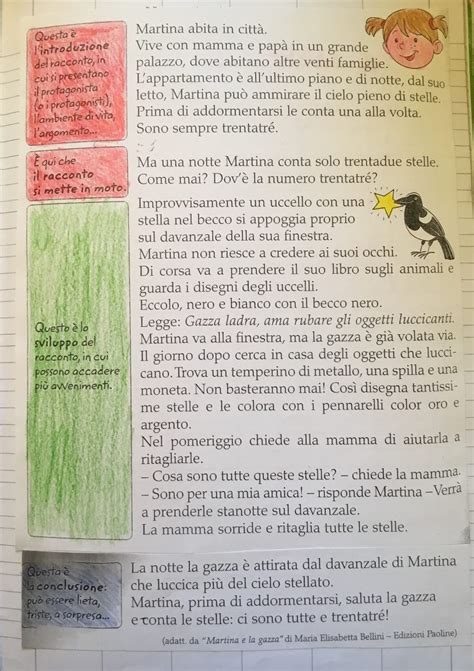 Questa è
l'introduzione
del racconto, in
cui si presentano
il protagonista
(o i protagonisti),
l'ambiente di vita,
l'argomento...
Martina abita in città.
Vive con mamma e papà in un grande
palazzo, dove abitano altre venti famiglie.
L'appartamento è all'ultimo piano e di notte, dal suo
letto, Martina può ammirare il cielo pieno di stelle.
Prima di addormentarsi le conta una alla volta.
Sono sempre trentatré.
È qui che
il racconto
si mette in moto.
Ma una notte Martina conta solo trentadue stelle.
Come mai? Dov'è la numero trentatré?
Questo è lo
sviluppo del
racconto, in cui
possono accadere
più avvenimenti.
Improvvisamente un uccello con una
stella nel becco si appoggia proprio
sul davanzale della sua finestra.
Martina non riesce a credere ai suoi occhi.
Di corsa va a prendere il suo libro sugli animali e
guarda i disegni degli uccelli.
Eccolo, nero e bianco con il becco nero.
Legge: Gazza ladra, ama rubare gli oggetti luccicanti.
Martina va alla finestra, ma la gazza è già volata via.
Il giorno dopo cerca in casa degli oggetti che lucci-
cano. Trova un temperino di metallo, una spilla e una
moneta. Non basteranno mai! Così disegna tantissi-
me stelle e le colora con i pennarelli color oro e
argento.
Nel pomeriggio chiede alla mamma di aiutarla a
ritagliarle.
– Cosa sono tutte queste stelle? – chiede la mamma.
– Sono per una mia amica! – risponde Martina – Verrà
a prenderle stanotte sul davanzale.
La mamma sorride e ritaglia tutte le stelle.
Questa è
la conclusione:
può essere lieta,
triste, a sorpresa...
La notte la gazza è attirata dal davanzale di Martina
che luccica più del cielo stellato.
Martina, prima di addormentarsi, saluta la gazza
e conta le stelle: ci sono tutte e trentatré!
(adatt. da "Martina e la gazza" di Maria Elisabetta Bellini – Edizioni Paoline)